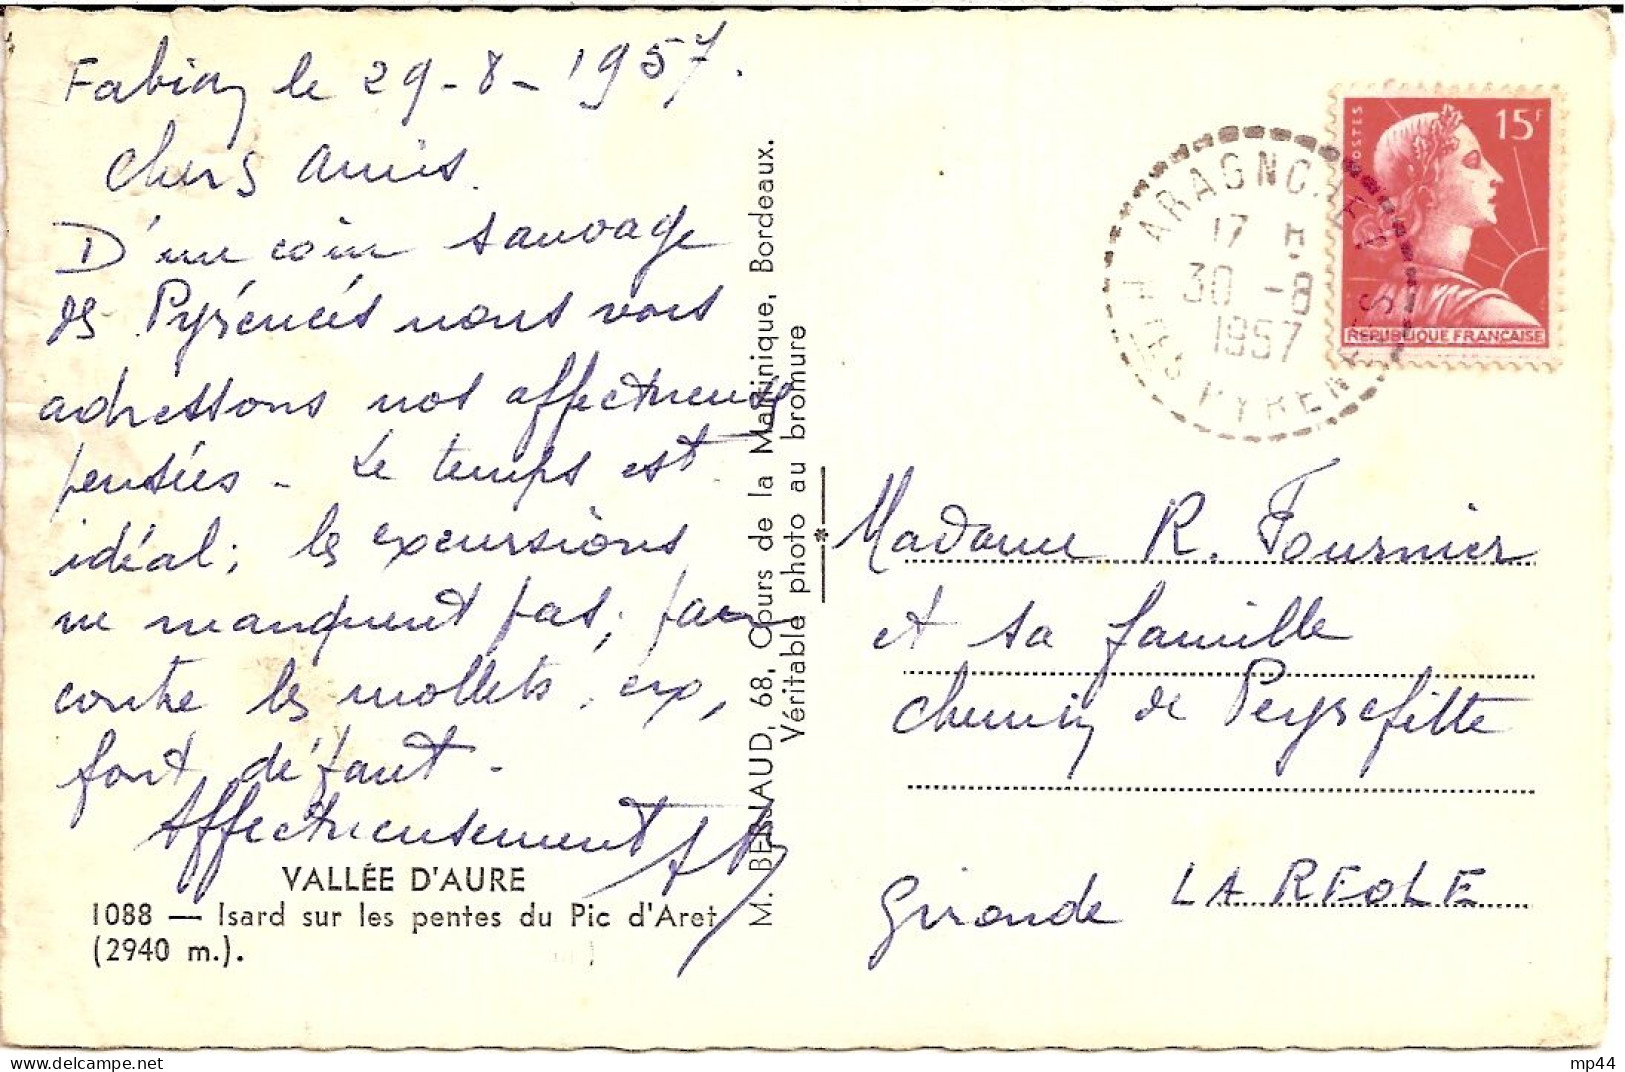 Fabian le 29-8-1957.
Chers amis.
D'un coin sauvage
des Pyrénées nous vous
adressons nos affectueuses
pensées - Le temps est
idéal ; les excursions
ne manquent pas ; par
contre les mollets, eux,
font défaut -
Affectueusement
VALLÉE D'AURE
1088 — Isard sur les pentes du Pic d'Aret
(2940 m.).
M. BERJAUD, 68, Cours de la Martinique, Bordeaux.
Véritable photo au bromure
POSTES
15F
REPUBLIQUE FRANÇAISE
ARAGNOUET
17 H
30 -8
1957
HTES PYRENEES
Madame R. Fournier
et sa famille
Chemin de Peyrefitte
LA REOLE
Gironde
mp44